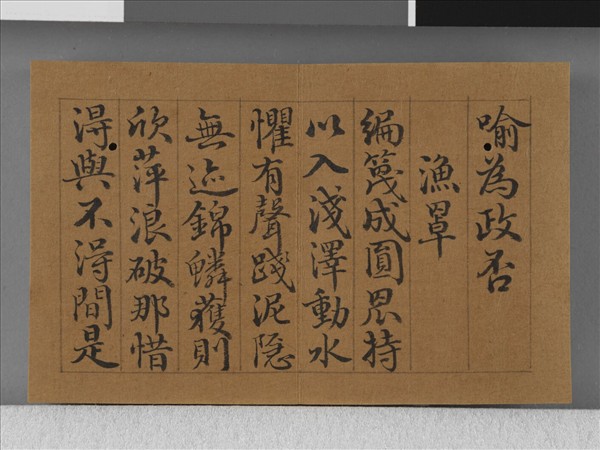 喻為政否
漁罩
編篾成圓罛持
以入淺澤動水
懼有聲踐泥隱
無迹錦鱗獲則
欣萍浪破那惜
淂與不淂間是